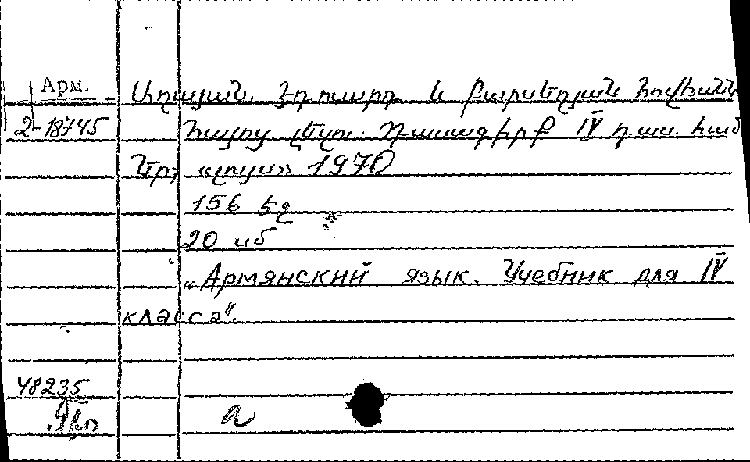 Арм.
Աղայան Էդուարդ և Բարսեղյան Հովհանն
2-18745
Հայոց լեզու. Դասագիրք IV դաս. համ
Եր, լույս 1970
156 էջ
20 սմ
„Армянский язык. Учебник для IV
класса".
48235
а